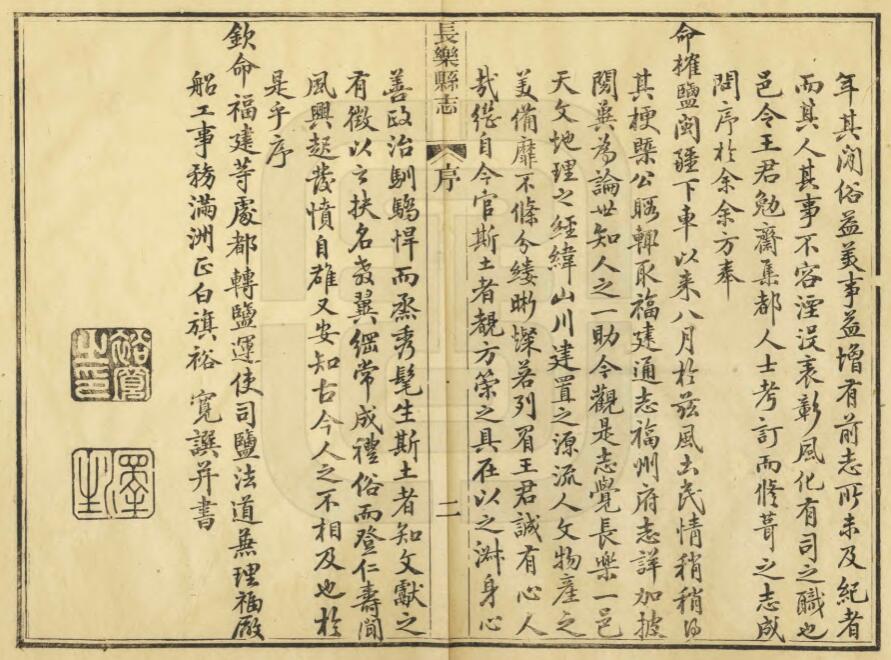 年其間俗益美事益增有前志所未及紀者
而其人其事不容湮沒表彰風化有司之職也
邑令王君勉齋集都人士考訂而修葺之志成
問序於余余方奉
命榷鹽閩疆下車以来八月於茲風土民情稍稍得
其梗槩公暇輒取福建通志福州府志詳加披
閱冀為論世知人之一助今觀是志覺長樂一邑
天文地理之經緯山川建置之源流人文物產之
美備靡不條分縷晰燦若列眉王君誠有心人
哉繼自今官斯土者覩方策之具在以之淑身心
長樂縣志
序
二
善政治馴驕悍而烝秀髦生斯土者知文獻之
有徵以之扶名教翼綱常成禮俗而登仁壽聞
風興起發憤自雄又安知古今人之不相及也於
是乎序
欽命福建等處都轉鹽運使司鹽法道兼理福厰
船工事務滿洲正白旗裕 寬譔并書
裕寬之印